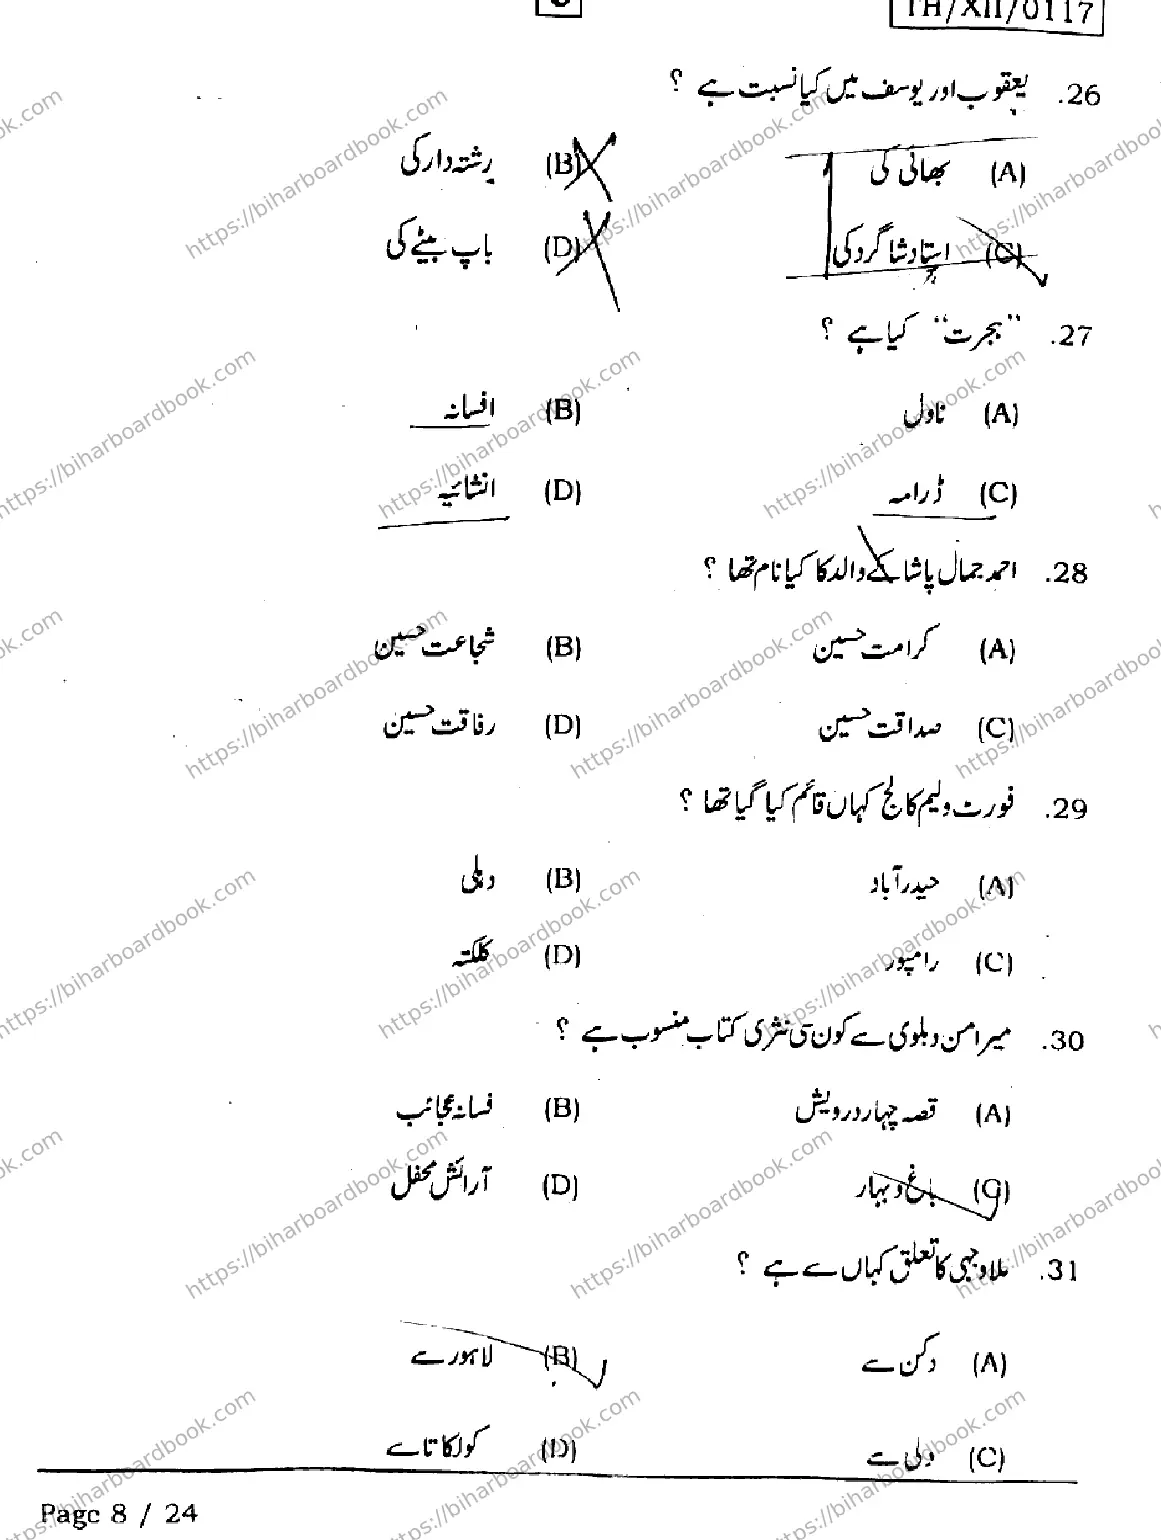 TH/XII/0117
26. یعقوب اور یوسف میں کیا نسبت ہے ؟
(A) بھائی کی (B) رشتہ دار کی
(C) استاد شاگرد کی (D) باپ بیٹے کی
27. "ہجرت" کیا ہے ؟
(A) ناول (B) افسانہ
(C) ڈرامہ (D) انشائیہ
28. احمد جمال پاشا کے والد کا کیا نام تھا ؟
(A) کرامت حسین (B) شجاعت حسین
(C) صداقت حسین (D) رفاقت حسین
29. فورٹ ولیم کالج کہاں قائم کیا گیا تھا ؟
(A) حیدرآباد (B) دہلی
(C) رامپور (D) کلکتہ
30. میر امن دہلوی سے کون سی نثری کتاب منسوب ہے ؟
(A) قصہ چہار درویش (B) فسانہ عجائب
(C) باغ و بہار (D) آرائش محفل
31. ملا وجہی کا تعلق کہاں سے ہے ؟
(A) دکن سے (B) لاہور سے
(C) دلی سے (D) کولکاتا سے
Page 8 / 24
https://biharboardbook.com